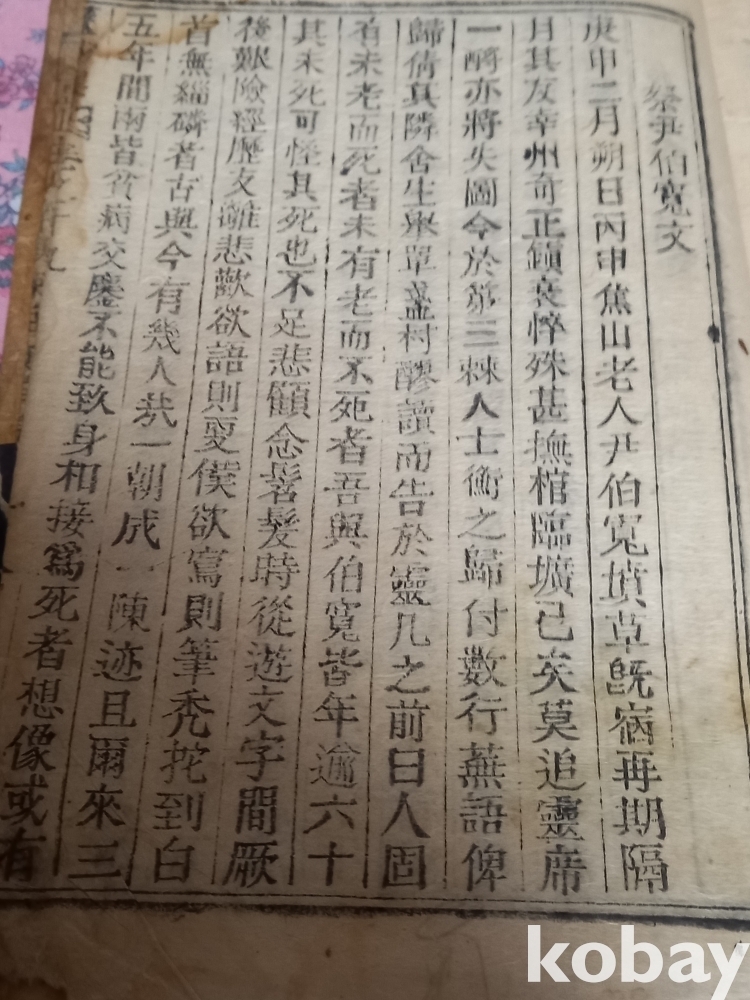 祭尹伯寬文
庚申二月朔日丙申焦山老人尹伯寬墳草既宿再期隔
月其友幸州奇正鎭衰悴殊甚撫棺臨壙已矣莫追靈席
一酹亦將失圖今於第三棘人士衡之歸付數行蕪語俾
歸倩其隣舍生擧單盞村醪讀而告於靈几之前曰人固
有未老而死者未有老而不死者吾與伯寬皆年逾六十
其未死可怪其死也不足悲顧念髫髮時從遊文字間厥
後艱險經歷友離悲歡欲語則更僕欲寫則筆禿抡到白
首無緇磷者古與今有幾人哉一朝成一陳迹且爾來三
五年間兩皆貧病交鏖不能致身相接爲死者想像或有
kobay